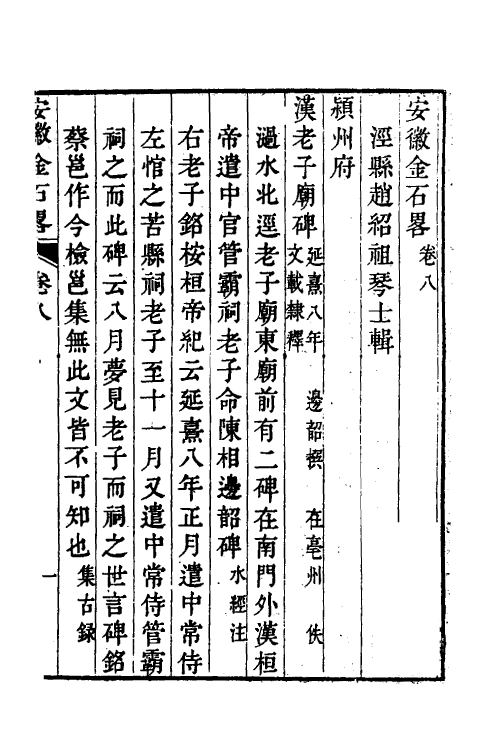 安徽金石畧 卷八
涇縣趙紹祖琴士輯
潁州府
漢老子廟碑 延熹八年 邊韶撰 在亳州 佚 文載隸釋
濄水北逕老子廟東廟前有二碑在南門外漢桓
帝遣中官管霸祠老子命陳相邊韶碑 水經注
右老子銘桉桓帝紀云延熹八年正月遣中常侍
左悺之苦縣祠老子至十一月又遣中常侍管霸
祠之而此碑云八月夢見老子而祠之世言碑銘
蔡邕作今檢邕集無此文皆不可知也 集古録
安徽金石畧 卷八 一